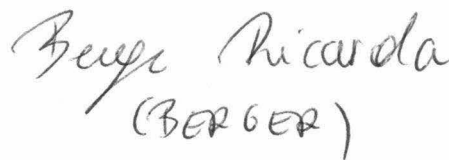 Berger Ricarda
(BERGER)